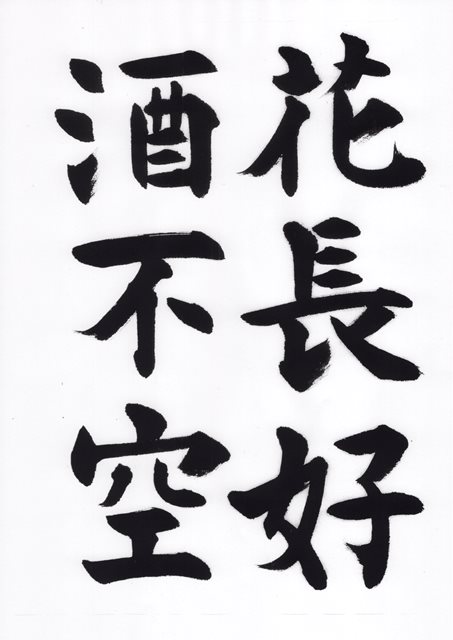 花長好
酒不空